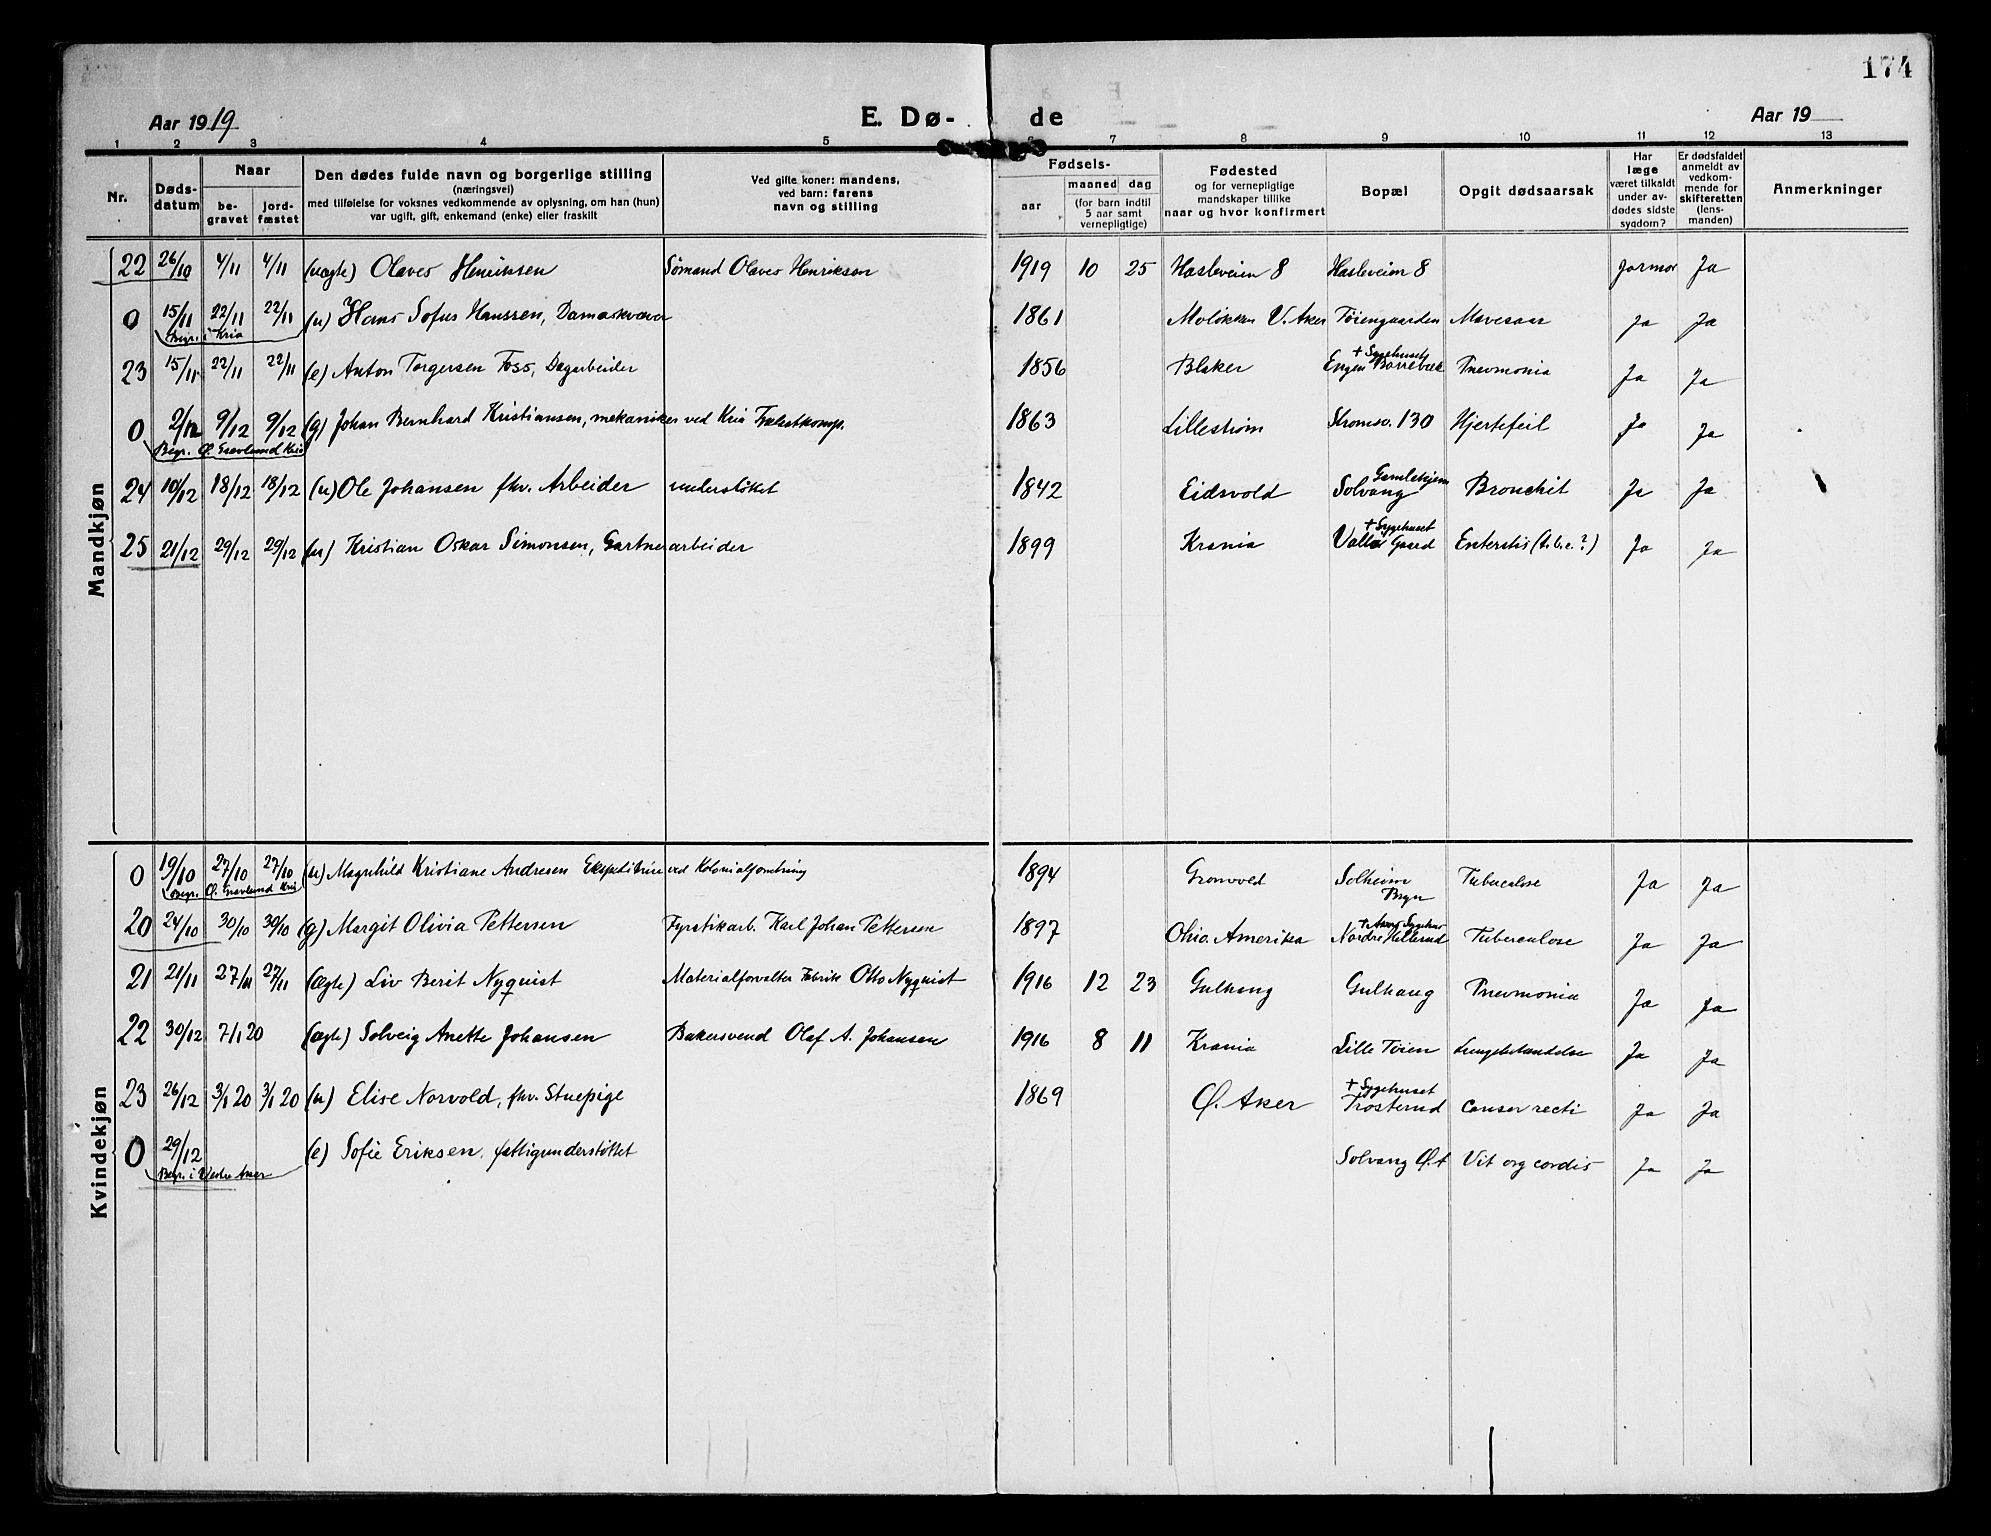 174
Aar 1919 E. Dø- de Aar 19
1 2 3 4 5 6 7 8 9 10 11 12 13
Nr. Døds-datum Naar be-gravet jord-fæstet Den dødes fulde navn og borgerlige stilling (næringsvei) med tilføielse for voksnes vedkommende av oplysning, om han (hun) var ugift, gift, enkemand (enke) eller fraskilt Ved gifte koner: mandens, ved barn: farens navn og stilling Fødsels- aar maaned dag (for barn indtil 5 aar samt vernepligtige) Fødested og for vernepligtige mandskaper tillike naar og hvor konfirmert Bopæl Opgit dødsaarsak Har læge været tilkaldt under av-dødes sidste sygdom? Er dødsfaldet anmeldt av vedkom-mende for skifteretten (lens-manden) Anmerkninger
Mandkjøn
22 26/10 4/11 4/11 (uegte) Olaves Henriksen Sømand Olaves Henriksen 1919 10 25 Hasleveien 8 Hasleveien 8 Jormor Ja
0 15/11 22/11 22/11 (u) Hans Sofus Hanssen, Damaskvæver 1861 V. Aker Tøiengaarden Mavesaar Ja Ja
Begr. i Kria
23 15/11 22/11 22/11 (e) Anton Torgersen Foss, Dagarbeider 1856 Blaker + Sygehuset Engen Borrebæk Pnevmonia Ja Ja
0 2/12 9/12 9/12 (g) Johan Bernhard Kristiansen, mekaniker ved Kria 1863 Lillestrøm Strømsv. 130 Hjertefeil Ja Ja
Begr. Ø. Gravlund Kria
24 10/12 18/12 18/12 (u) Ole Johansen fhv. Arbeider understøket 1842 Eidsvold Gamlehjem Solvang Bronchit Ja Ja
25 21/12 29/12 29/12 (u) Kristian Oskar Simonsen, Gartnerarbeider 1899 Krania + Sygehuset Valle Gaard (t.b.c.?) Ja Ja
Kvindekjøn
0 19/10 27/10 27/10 (u) Magnhild Kristiane Andresen Ekspeditrice ved Kolonialforretning 1894 Grønvold Solheim Bryn Tuberculose Ja Ja
Begr. Ø. Gravlund Kria
20 24/10 30/10 30/10 (g) Margit Olivia Pettersen Fyrstikarb. Karl Johan Pettersen 1897 Ohio Amerika + Sygehus Nordre Hellerud Tuberculose Ja Ja
21 21/11 27/11 27/11 (Ægte) Liv Berit Nyquist Materialforvalter Fabrik Otto Nyquist 1916 12 23 Gulhaug Gulhaug Pnevmonia Ja Ja
22 30/12 7/1 20 (ægte) Solveig Anette Johansen Bakersvend Olaf A. Johansen 1916 8 11 Krania Lille Tøien Lungebetændelse Ja Ja
23 26/12 3/1 20 3/1 20 (u) Elise Norvold, fhv. Stuepige 1869 Ø. Aker + Sygehuset Trosterud Cancer recti Ja Ja
0 29/12 (e) Sofie Eriksen. fattigunderstøttet Solvang Ø.A Vit org cordis Ja Ja
Begr. i Vestre Aker